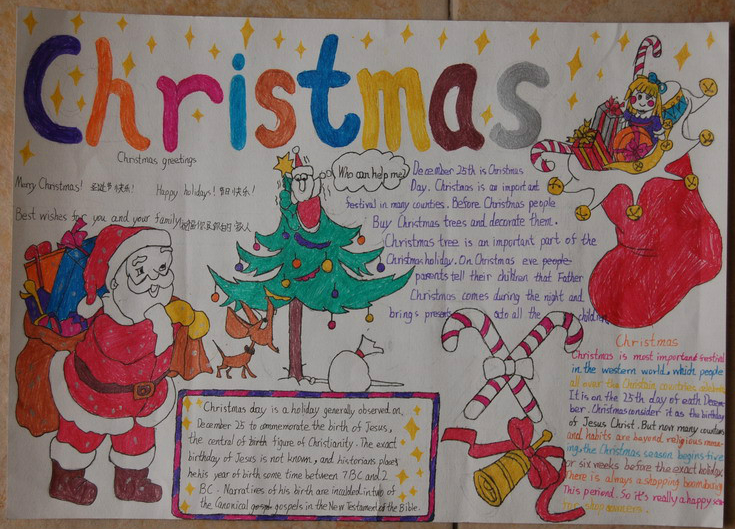 Christmas
Christmas greetings
Merry Christmas! 圣诞节快乐!
Happy holidays! 节日快乐!
Best wishes for you and your family
Who can help me?
December 25th is Christmas
Day. Christmas is an important
festival in many counties. Before Christmas people
Buy Christmas trees and decorate them.
Christmas tree is an important part of the
Christmas holiday. On Christmas eve people
parents tell their children that Father
Christmas comes during the night and
brings presents to all the children
Christmas day is a holiday generally observed on
December 25 to commemorate the birth of Jesus,
the central of birth figure of Christianity. The exact
birthday of Jesus is not known, and historians places
he his year of birth some time between 7 BC and 2
BC. Narratives of his birth are included in two of
the Canonical gospels in the New Testament of the Bible.
Christmas
Christmas is most important festival
in the western world. which people
all over the Christain countries celebrate
It is on the 25th day of eath Decem-
ber. Christmas consider it as the birthday
of Jesus Christ. But now many countries
and habits are beyond religious mea-
ing, the Christmas season begins five
or six weeks before the exact holiday
There is always a stopping boom during
This periond. So it's really a happy